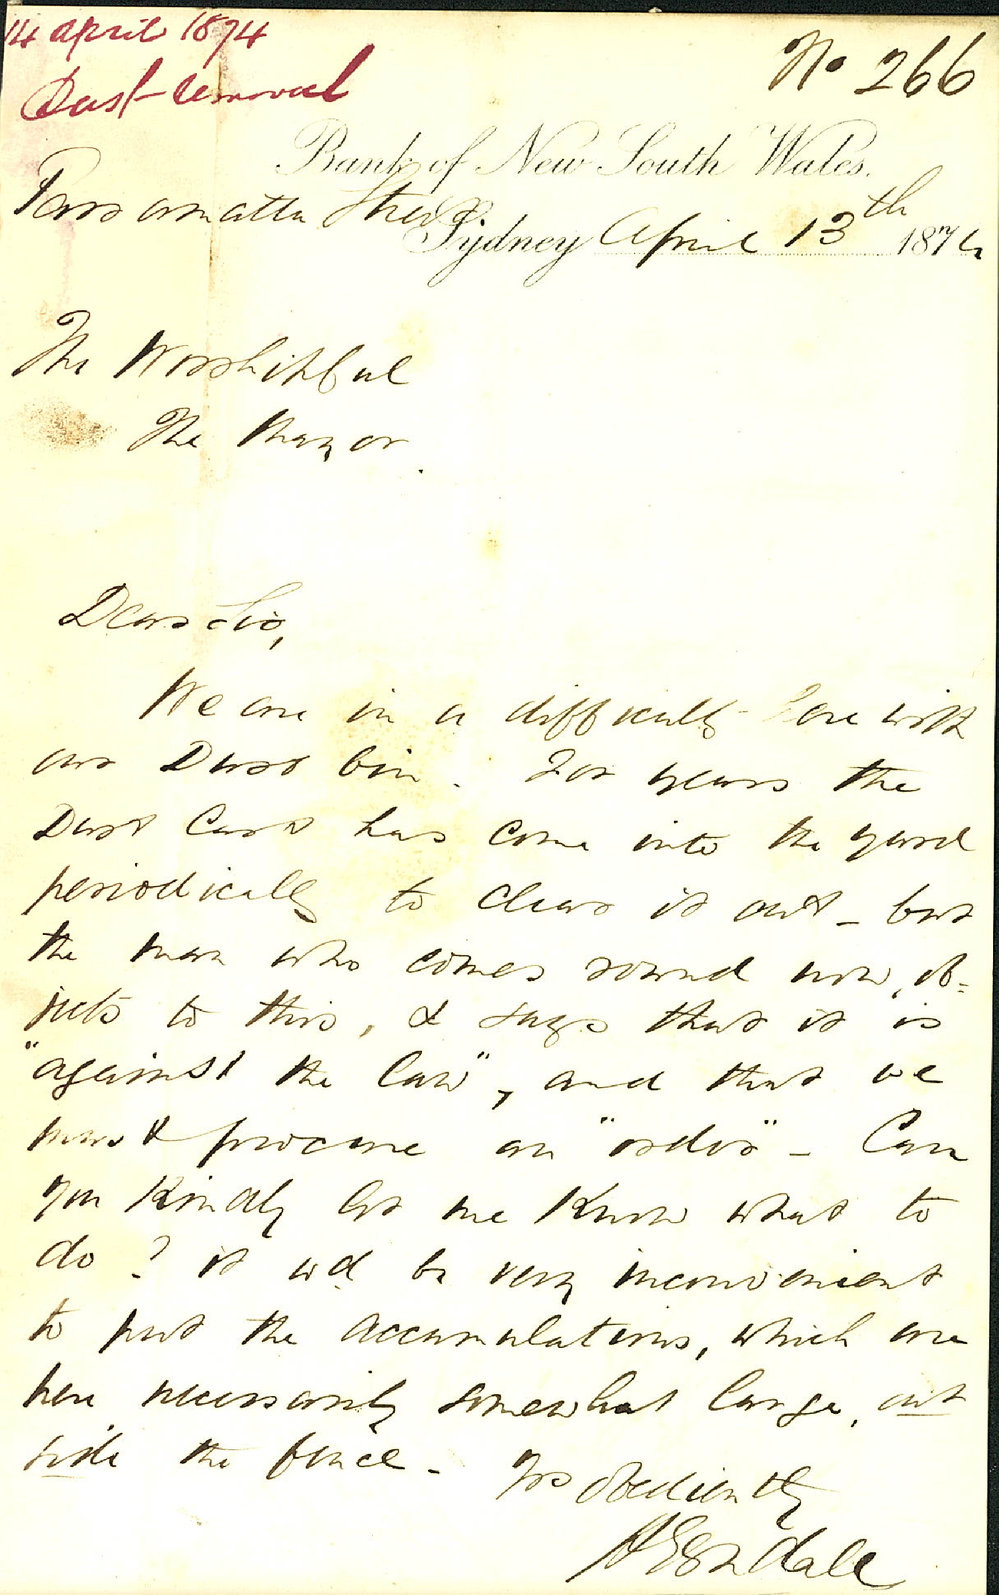 14 april 1874
Dust removal
No 266
Bank of New South Wales.
Parramatta Street
Sydney April 13th 1874
The Worshipful
The Mayor.
Dear Sir,
We are in a difficulty here with
our Dust bin. For years the
Dust Cart has come into the yard
periodically to clear it out - but
the man who comes round now, ob=
jects to this, & says that it is
"against the law", and that we
must procure an "order" - Can
you kindly let me know what to
do? it wd be very inconvenient
to put the accumulations, which are
here necessarily somewhat large, out
side the fence -
Yrs obediently